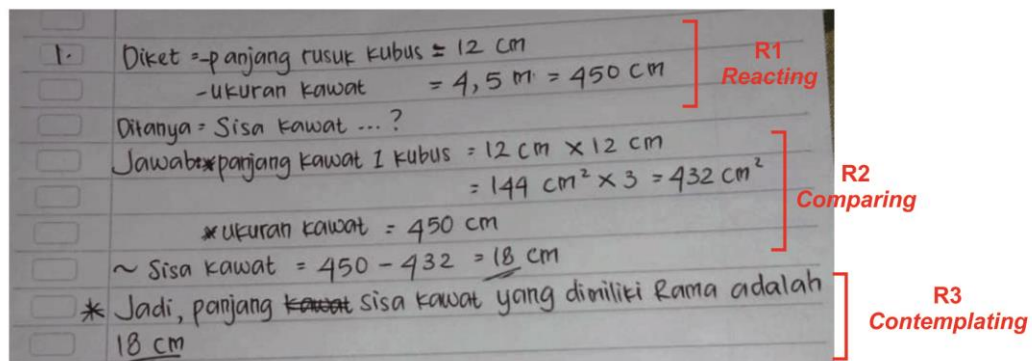 1. Diket = -panjang rusuk kubus = 12 cm
-ukuran kawat = 4,5 m = 450 cm
R1
Reacting
Ditanya = Sisa kawat ... ?
Jawab: *panjang kawat 1 kubus = 12 cm x 12 cm
= 144 cm² x 3 = 432 cm²
*ukuran kawat = 450 cm
~ Sisa kawat = 450 - 432 = 18 cm
R2
Comparing
* Jadi, panjang kawat sisa kawat yang dimiliki Rama adalah
18 cm
R3
Contemplating